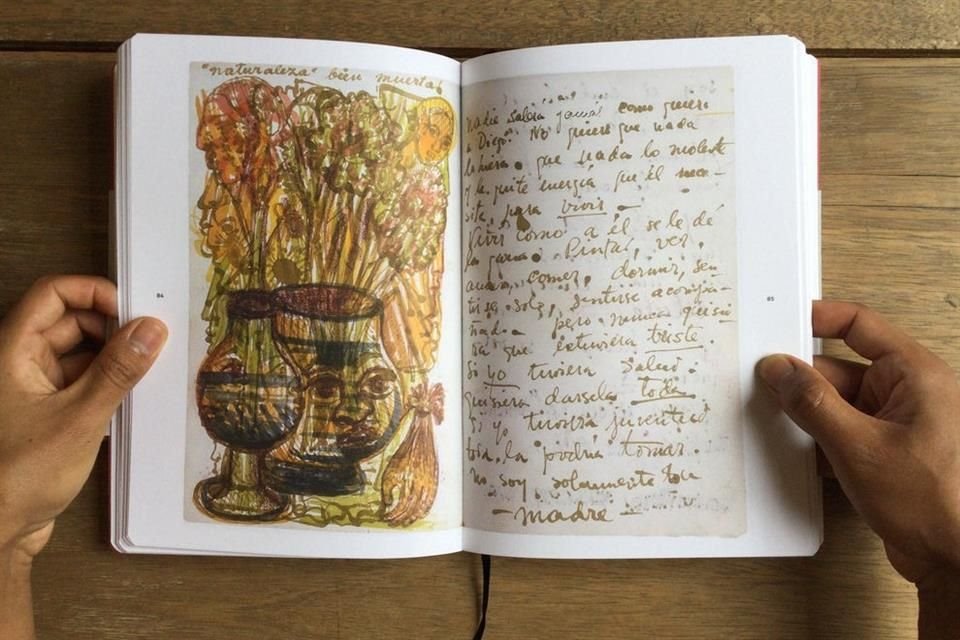 "naturaleza" bien muerta!
84
Nadie sabrá jamás como quiero
a Diego. No quiero que nada
lo hiera. que nada lo moleste
y le quite energía que él nece-
sita para vivir —
Vivir como a él se le dé
la gana. Pintar, ver,
amar, comer, dormir, sen-
tirse solo, sentirse acompa-
ñado — pero nunca quisie
ra que estuviera triste.
Si yo tuviera salud
quisiera darsela toda
si yo tuviera juventud
toda la podría tomar.
no soy solamente tu
— madre —
85